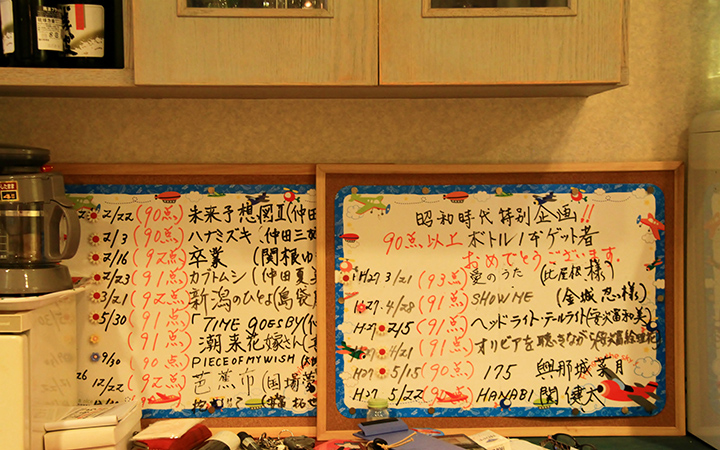 2/22 (90点) 未来予想図Ⅱ(仲田
2/3 (90点) ハナミズキ (仲田三
2/16 (92点) 卒業 (関根ゆ
2/23 (91点) カブトムシ (仲田夏美
3/21 (92点) 新潟のひとよ(島袋
5/30 (91点) 「TIME GOES BY(
(91点) 潮来花嫁さん
9/30 (90点) PIECE OF MY WISH (
12/22 (92点) 芭蕉布 (国場
(91点)
昭和時代特別企画!!
90点以上 ボトル1本ゲット者
おめでとうございます。
H27 3/21 (93点) 愛のうた (比屋根様)
H27 4/28 (91点) SHOW ME (金城 忍様)
H27 2/15 (91点) ヘッドライト・テールライト(安次富和美)
H27 4/21 (91点) オリビアを聴きながら
H27 5/15 (90点) 175 與那城葉月
H27 5/22 (90点) HANABI 関 健太